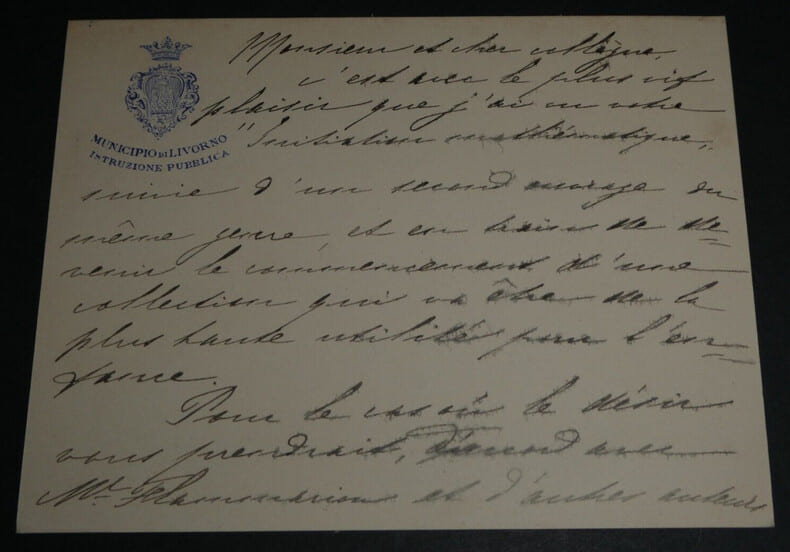 MUNICIPIO DI LIVORNO
ISTRUZIONE PUBBLICA
Monsieur et cher collègue,
c'est avec le plus vif
plaisir que j'ai vu votre
"Initiation mathématique,
suivie d'un second ouvrage du
même genre, et en train de de=
venir le commencement d'une
collection qui va être de la
plus haute utilité pour l'en=
fance.
Pour le cas où le désir
vous prendrait, d'accord avec
Mr. Flammarion et d'autres auteurs